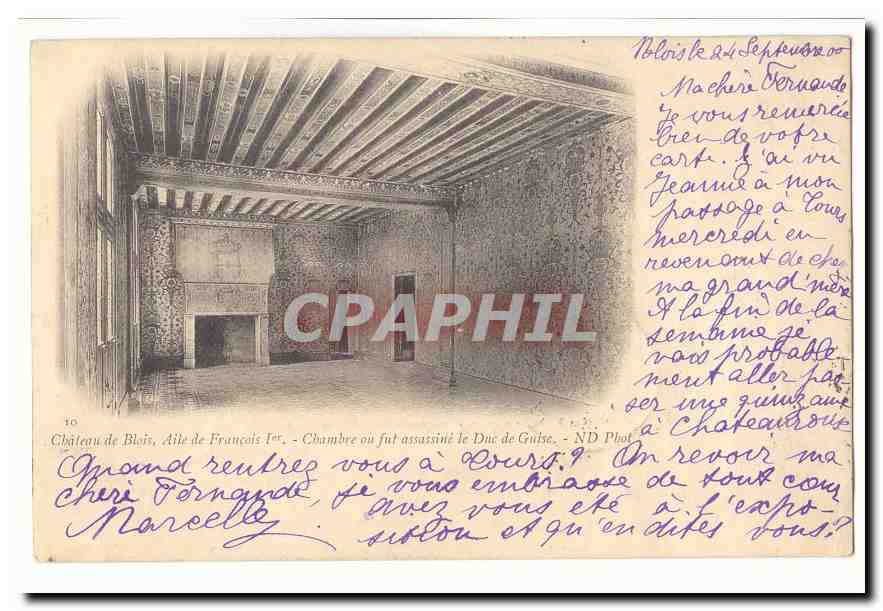 Blois le 24 Septembre 00
Ma chère Fernande
Je vous remercie
bien de votre
carte. J'ai vu
Jeanne à mon
passage à Tours
mercredi en
revenant de chez
ma grand'mère
A la fin de la
semaine je
vais probable-
ment aller pas-
ser une quinzaine
à Chateauroux
CPAPHIL
10
Château de Blois, Aile de François Ier. - Chambre ou fut assassiné le Duc de Guise. - ND Phot
Quand rentrez vous à Tours? Au revoir ma
chère Fernande, je vous embrasse de tout cœur
Marcelle
avez vous été à l'expo-
sition et qu'en dites vous?